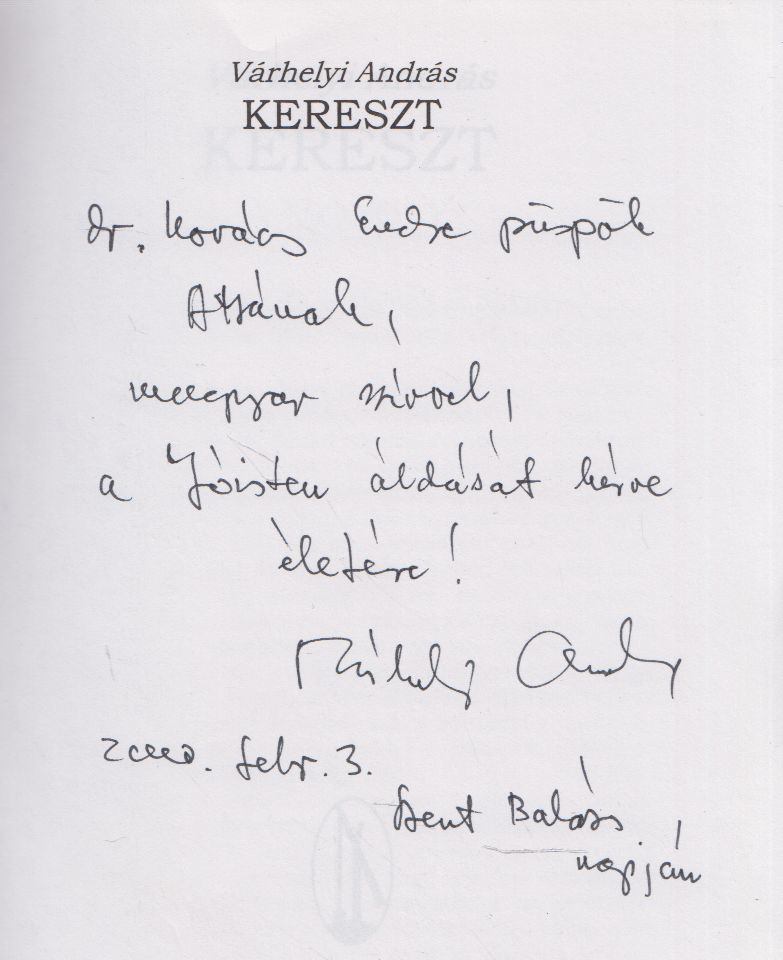 Várhelyi András
KERESZT
dr. Kovács Endre püspök
Atyának,
magyar szívvel,
a Jóisten áldását kérve
életére!
Várhelyi András
2000. febr. 3.
Szent Balázs
napján